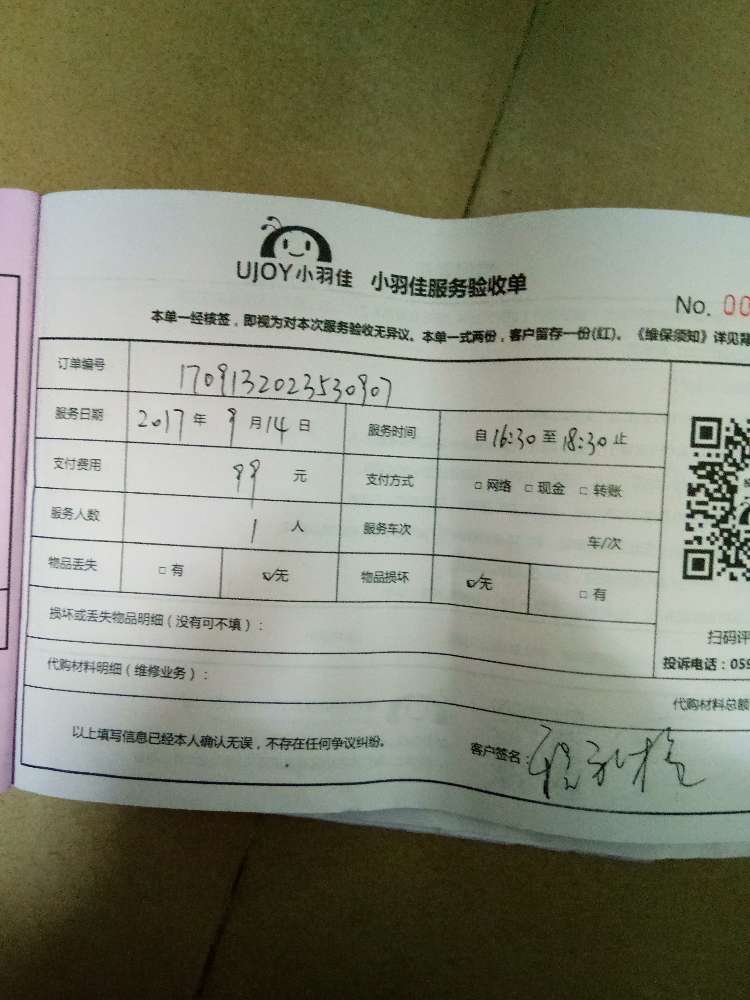 UJOY小羽佳 小羽佳服务验收单
No. 00
本单一经核签，即视为对本次服务验收无异议。本单一式两份，客户留存一份(红)。《维保须知》详见背
订单编号 1709132023530907
服务日期 2017 年 9 月 14 日 服务时间 自 16:30 至 18:30 止
支付费用 99 元 支付方式 □ 网络 □ 现金 □ 转账
服务人数 1 人 服务车次 车/次
物品丢失 □ 有 ☑无 物品损坏 ☑无 □ 有
损坏或丢失物品明细（没有可不填）：
扫码评
代购材料明细（维修业务）：
投诉电话：059
代购材料总额
以上填写信息已经本人确认无误，不存在任何争议纠纷。 客户签名：